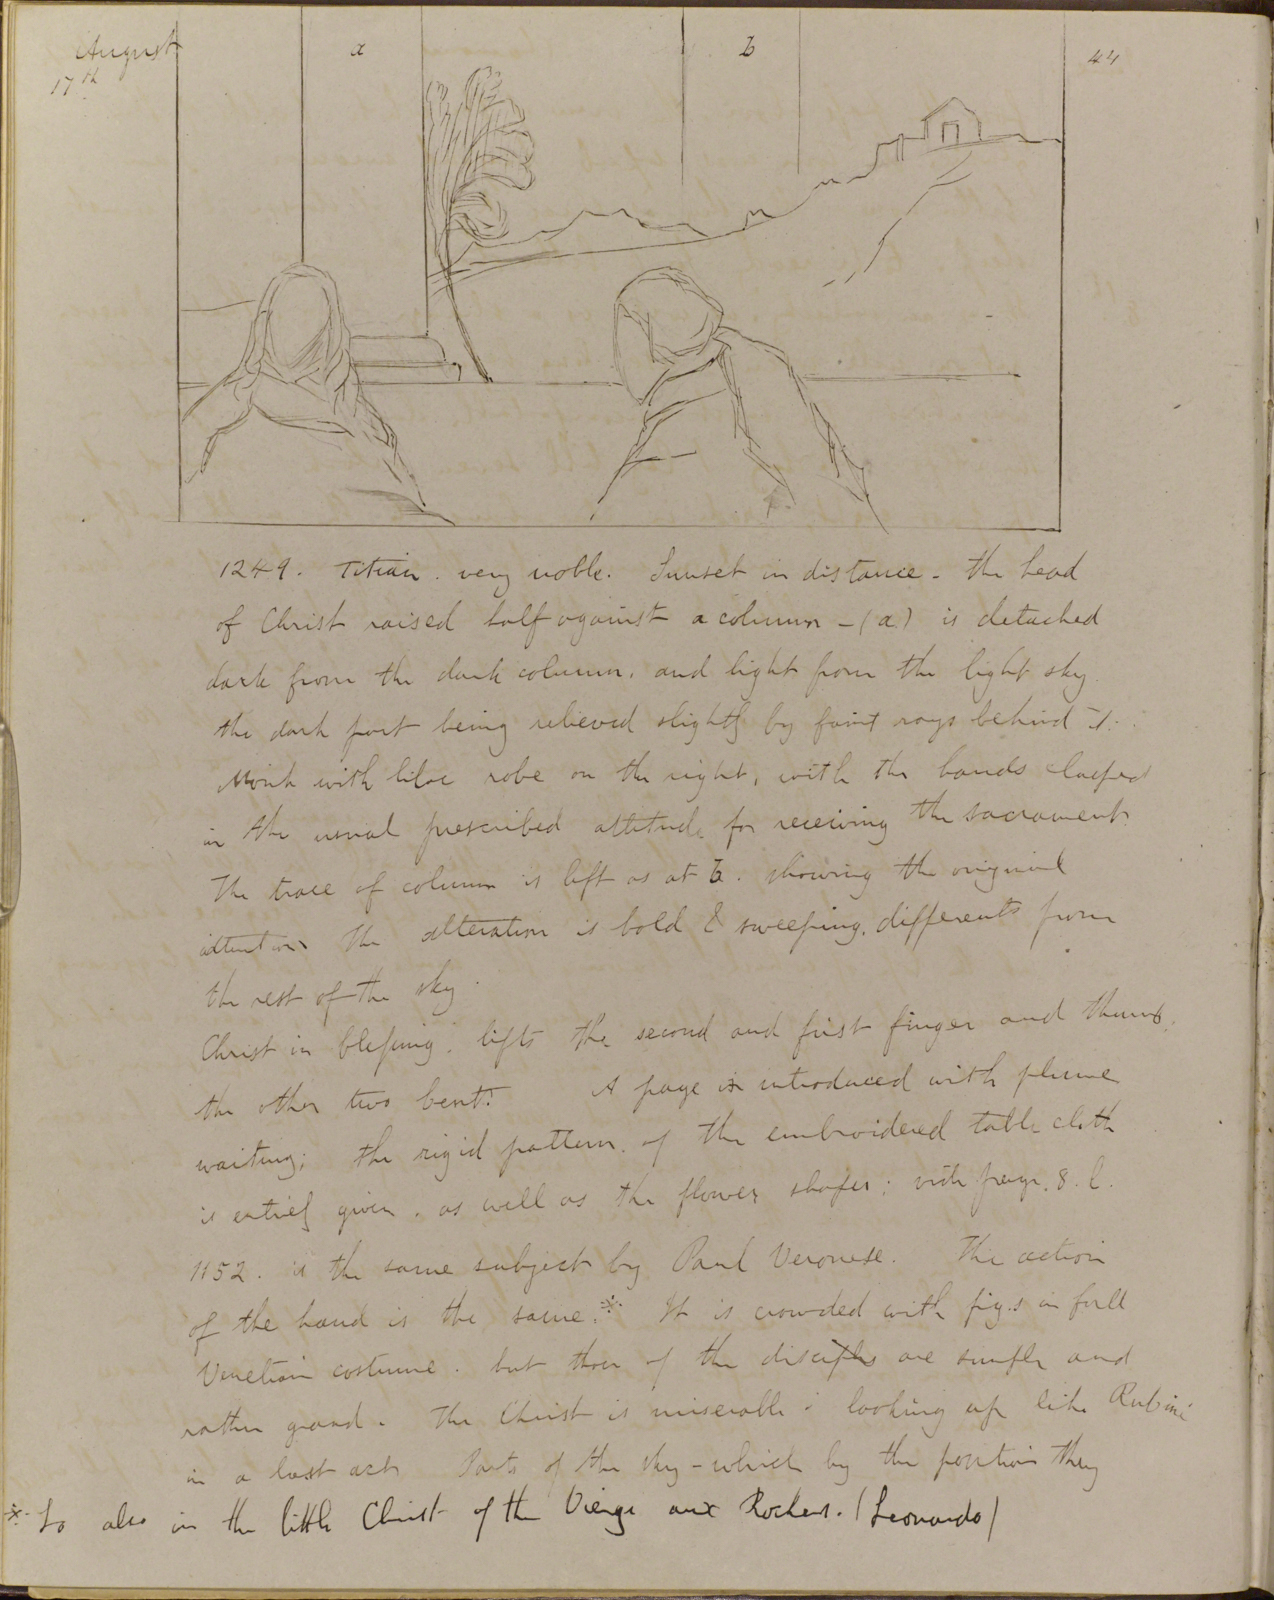 August
17th
a
b
44
1249. Titian. very noble. Sunset in distance - the head
of Christ raised half against a column - (a) is detached
dark from the dark column, and light from the light sky
the dark part being relieved slightly by faint rays behind it.
Monk with lilac robe on the right, with the hands clasped
in the usual prescribed attitude for receiving the sacrament
The trace of column is left as at b. showing the original
intention the alteration is bold & sweeping, different from
the rest of the sky.
Christ in blessing. lifts the second and first finger and thumb,
the other two bent. A page is introduced with plume
waiting; the rigid pattern of the embroidered table cloth
is entirely given, as well as the flower shapes; vide page. 8. l.
1152. is the same subject by Paul Veronese. The action
of the hand is the same.* It is crowded with figs in full
Venetian costume. but those of the disciples are simple and
rather grand. The Christ is miserable: looking up like Rubini
in a last act Parts of the sky - which by the position they
* So also in the little Christ of the Vierge aux Rochers. (Leonardo)